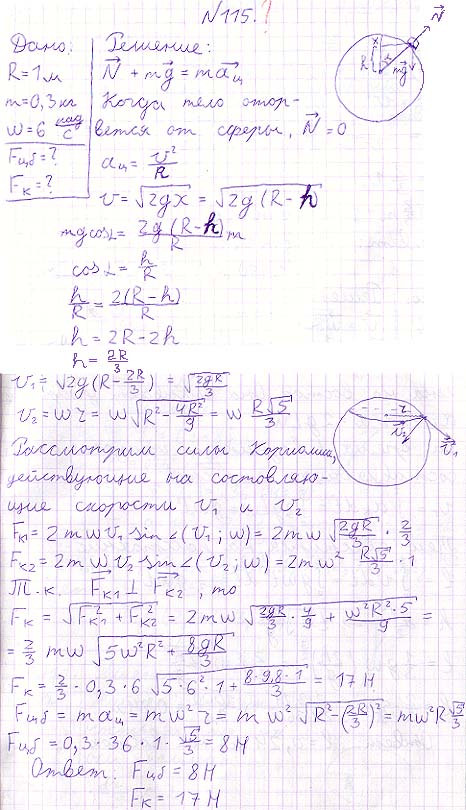 N 115. ?
Дано: Решение:
R = 1 м N + mg = ma ц
m = 0,3 кг Когда тело отор-
ω = 6 рад/с вется от сферы, N = 0
Fцб = ? aц = v²/R
Fк = ? v = √2gx = √2g(R-h)
mg cosα = 2g(R-h)/R m
cosα = h/R
h/R = 2(R-h)/R
h = 2R - 2h
h = 2R/3
v₁ = √2g(R - 2R/3) = √2gR/3
v₂ = ω r = ω √R² - 4R²/9 = ω R√5/3
Рассмотрим силы Кориолиса,
действующие на составляю-
щие скорости v₁ и v₂
Fк1 = 2mω v₁ sin∠(v₁; ω) = 2mω √2gR/3 · 2/3
Fк2 = 2mω v₂ sin∠(v₂; ω) = 2mω² R√5/3 · 1
Т.к. Fк1 ⊥ Fк2, то
Fк = √Fк1² + Fк2² = 2mω √2gR/3 · 4/9 + ω²R²·5/9 =
= 2/3 mω √5ω²R² + 8gR/3
Fк = 2/3 · 0,3 · 6 √5·6²·1 + 8·9,8·1/3 = 17 Н
Fцб = maц = mω² r = mω² √R² - (2R/3)² = mω²R √5/3
Fцб = 0,3 · 36 · 1 · √5/3 = 8 Н
Ответ: Fцб = 8 Н
Fк = 17 Н
N
x
R
h
α
mg
r
v₂
v₁